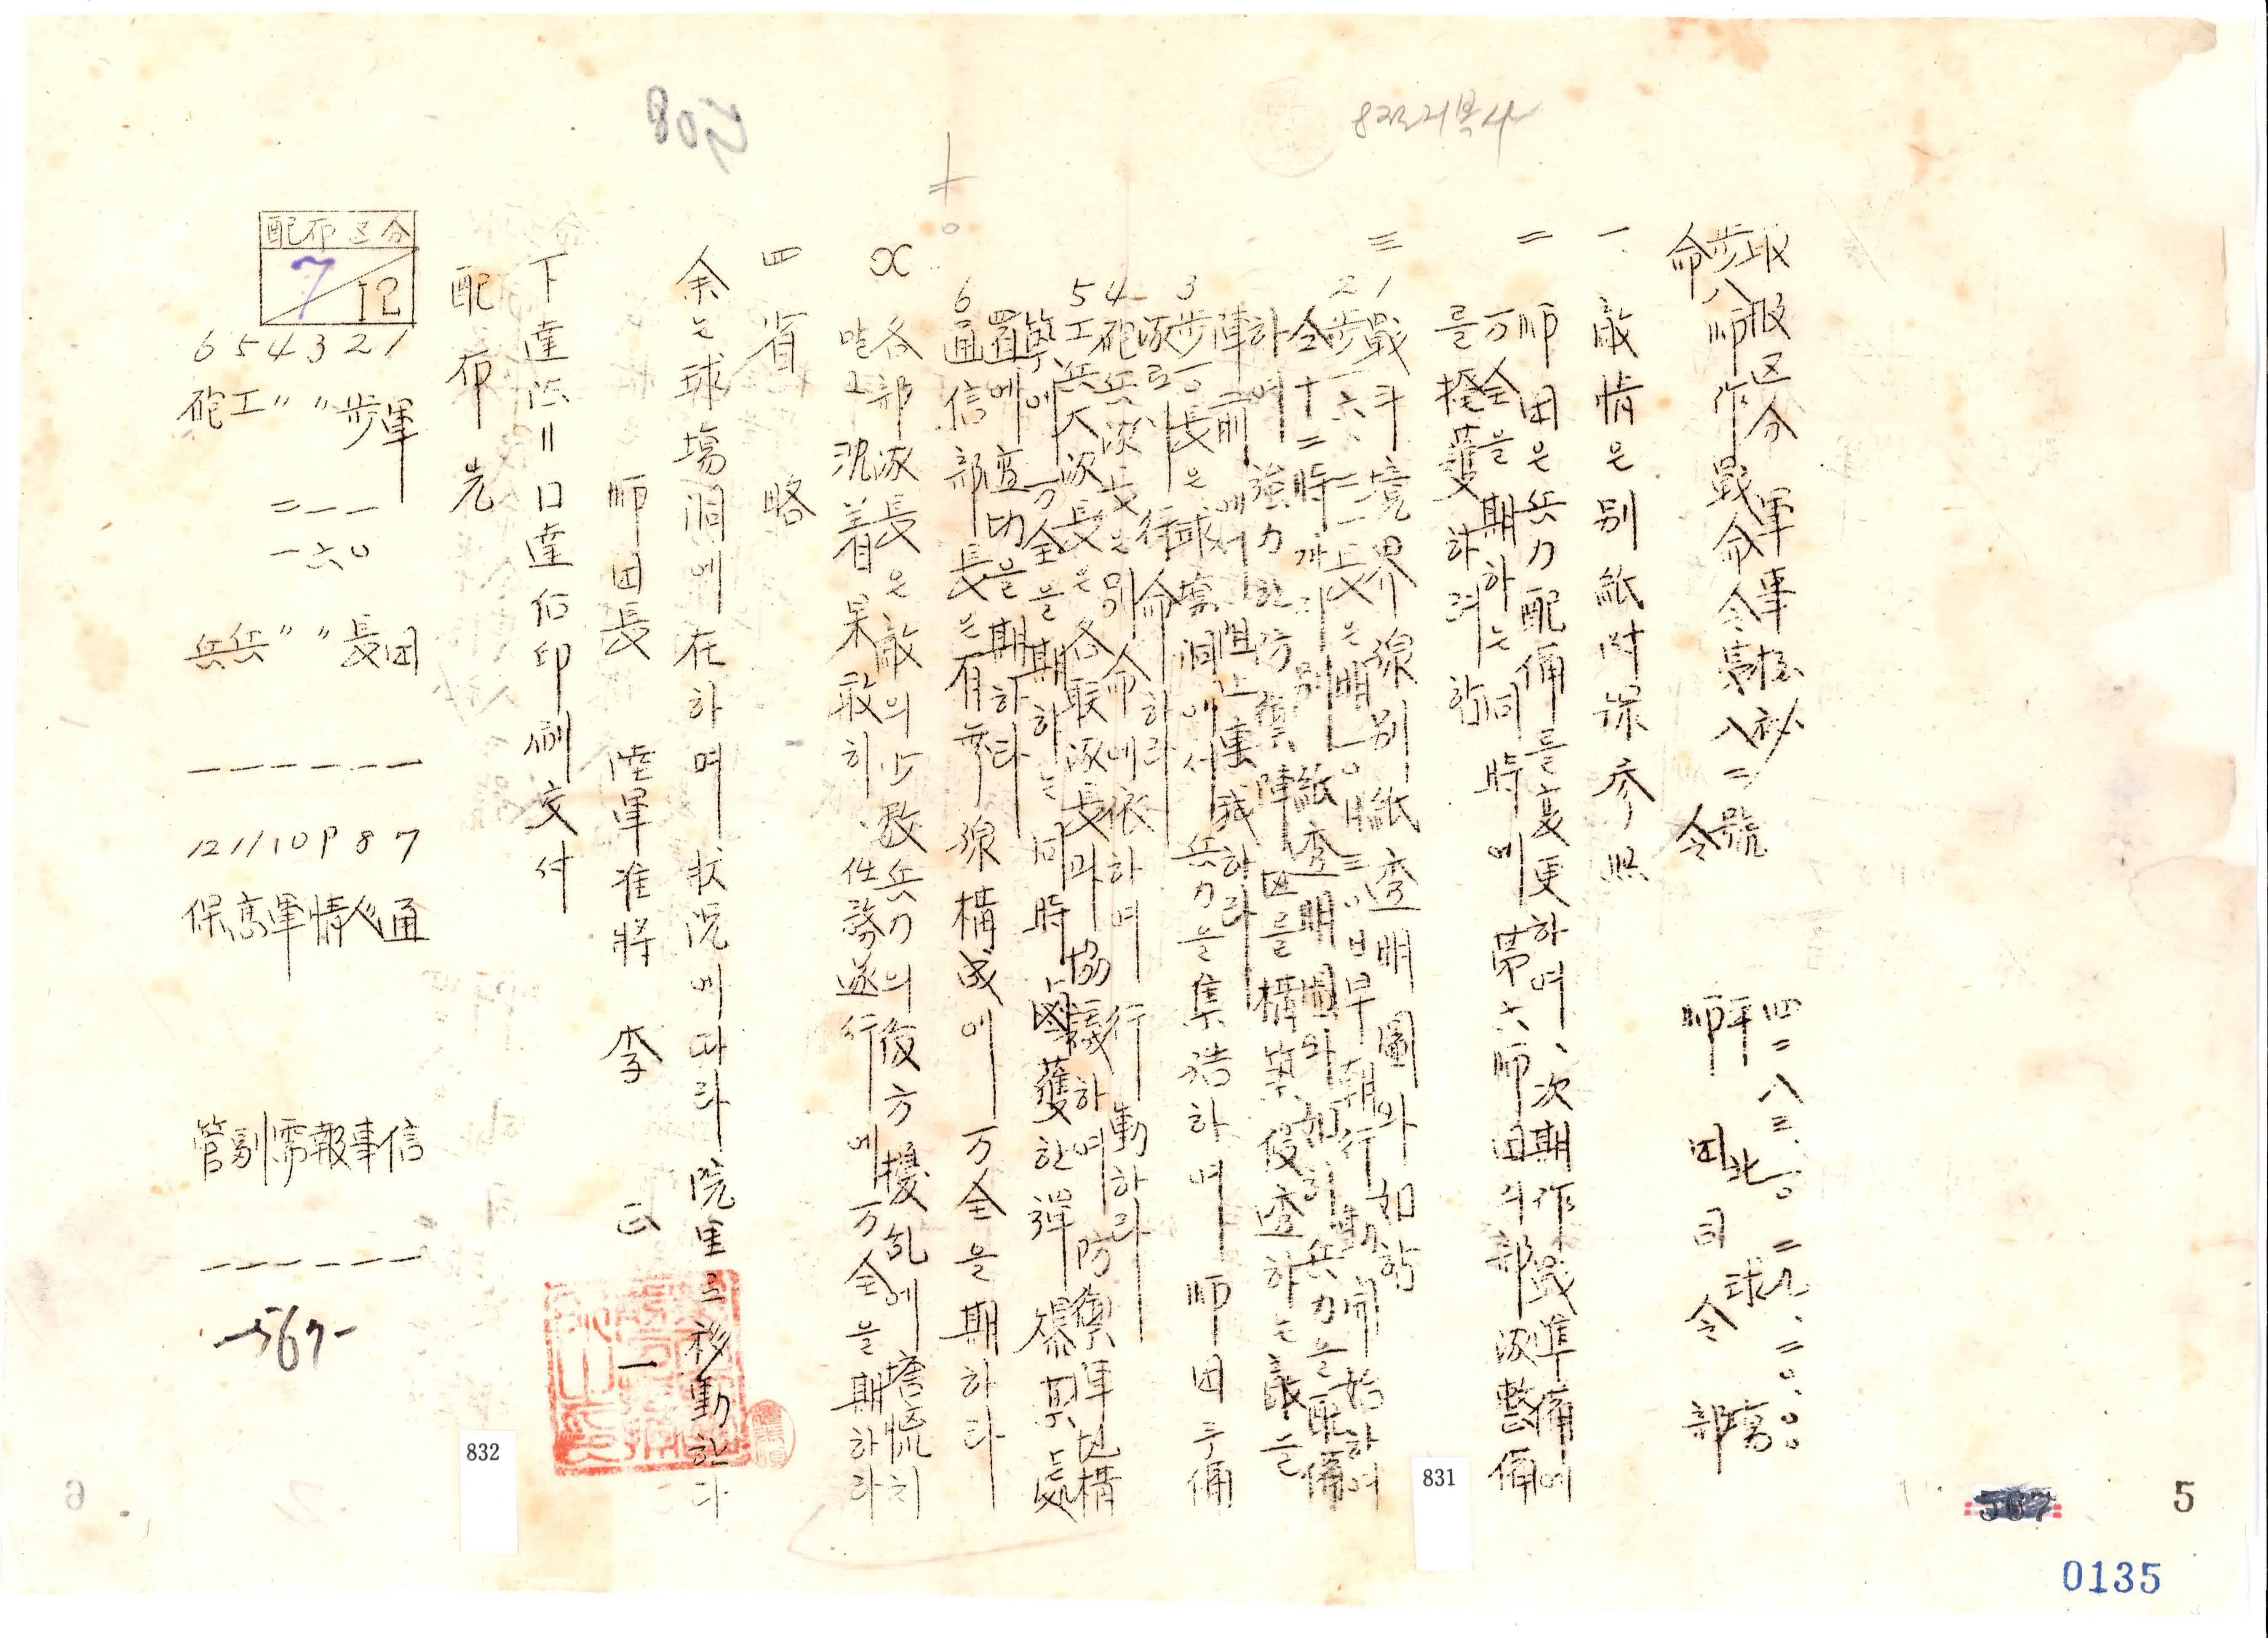 取扱区分 軍事極秘
步八師作戰命令第八二號
命令
四二八三.一〇.二九.二〇.〇〇
平北 球場
師団司令部
一 敵情은別紙附錄參照
二 師団은兵力配備를変更하여、次期作戰準備에
万全을期하는同時에第六師団의部隊整備
를掩護하려함
三
1 戰斗境界線別紙透明圖와如함
2 步一六、二一長은明一〇月三〇日早朝行動開始하여
全十二時까지別紙透明圖와如히兵力을配備
하여强力한防禦陣地를構築浸透하는敵을
陣前에서阻止擊滅하라
3 步一〇長은球場洞에서兵力을集結하여師団予備
隊로行命하라
4 砲兵隊長은別命에依하여行動하라
5 工兵大隊長은各聯隊長과協議하여防禦陣地構
築에万全을期하는同時鹵獲한彈藥集處
置에適切을期하라
6 通信部長은有無線構成에万全을期하라
x 各部隊長은敵의少数兵力의後方擾乱에唐慌치
말고沈着果敢히、任務遂行에万全을期하라
四 省略
余는球場洞에在하며狀況에따라院里로移動한다
師団長 陸軍准將 李 正 一
下達法=口達后印刷交付
配布先
配布区分
7/12
1 軍団
2 步一〇長
3 〃一六〃
4 〃二一〃
5 工兵
6 砲兵
7 通信
8 人事
9 情報
10 軍需
11 高副
12 保管
-567-
508
832
831
567
5
6
0135